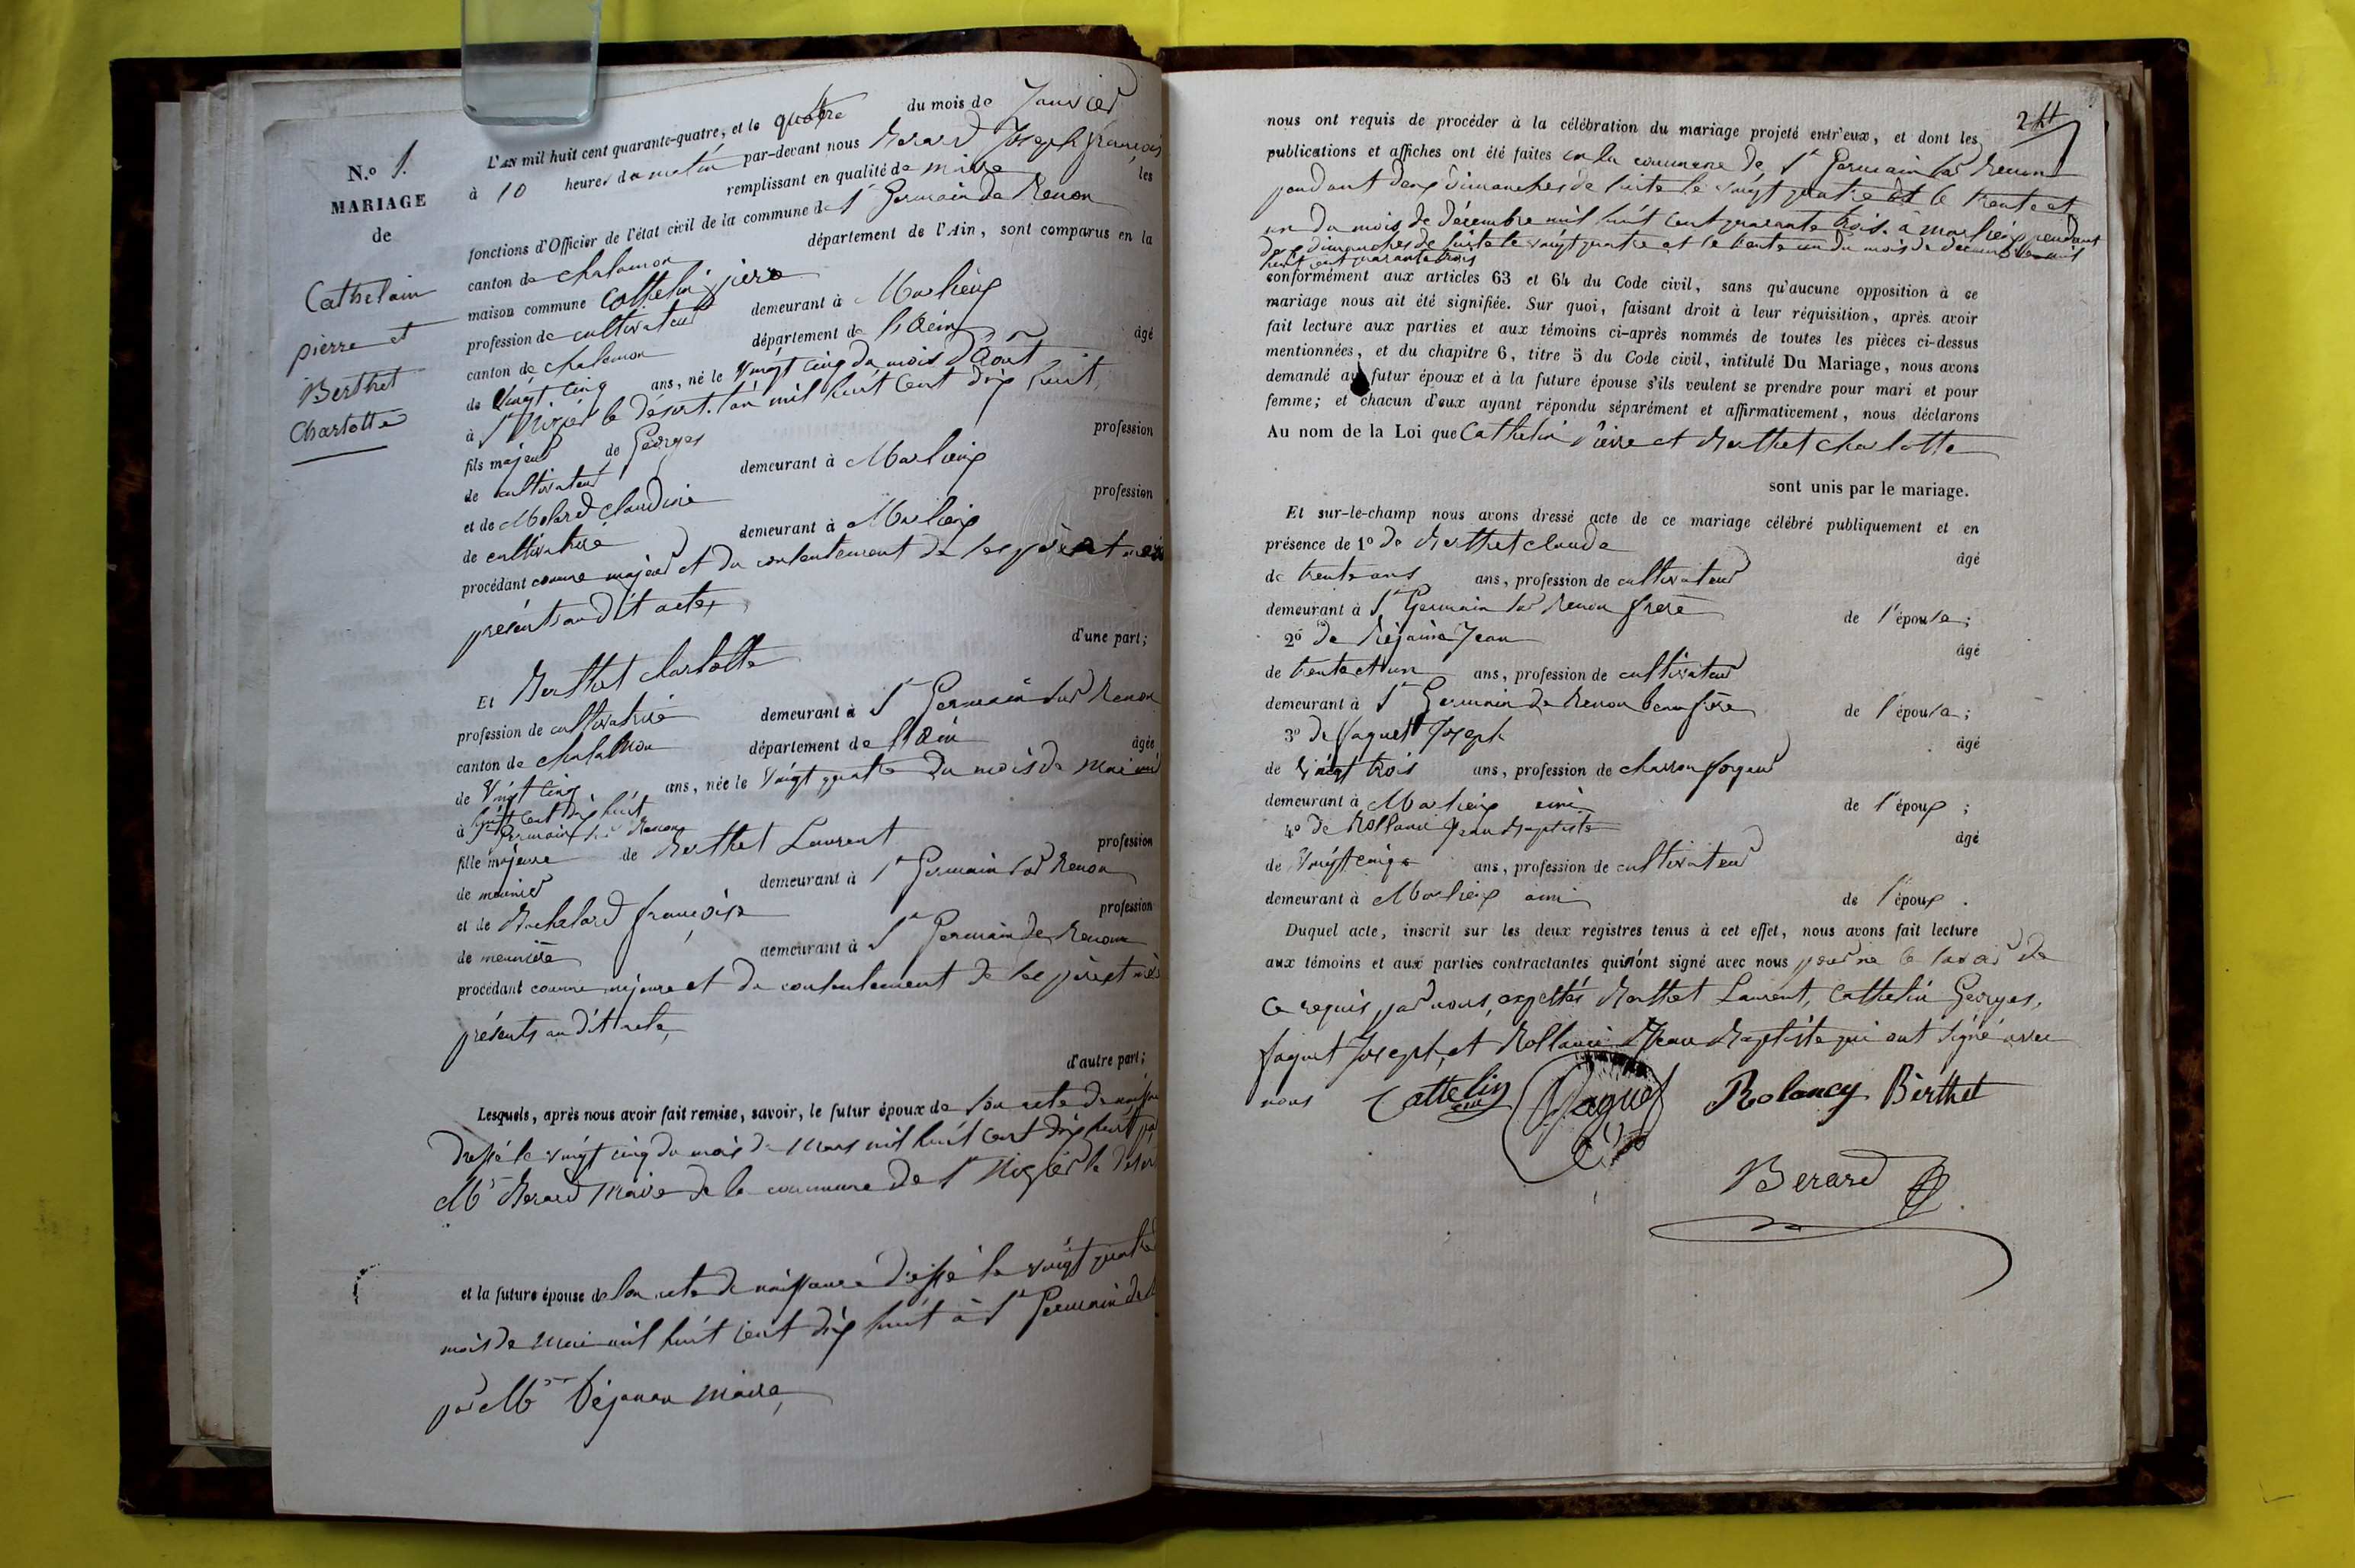 N.º 1.
MARIAGE
de
Cathelain
pierre et
Berthet
Charlotte
L'AN mil huit cent quarante-quatre, et le quatre du mois de Janvier
à 10 heures du matin par-devant nous Berard Joseph françois
remplissant en qualité de maire les
fonctions d'Officier de l'état civil de la commune de St Germain de Renon
canton de chalamon département de l'Ain, sont comparus en la
maison commune Cathelin pierre
profession de cultivateur demeurant à Marlieux
canton de chalamon département de l'Ain âgé
de Vingt cinq ans, né le vingt cinq du mois d'Août
à St Nizier le désert. l'an mil huit cent dix huit,
fils majeur de Georges profession
de cultivateur demeurant à Marlieux
et de Molard Claudine profession
de cultivatrice demeurant à Marlieux
procédant comme majeur et du contentement de ses père et mère
présents au dit acte,
d'une part;
Et Berthet charlotte
profession de cultivatrice demeurant à St Germain sur Renon
canton de chalamon département de l'Ain âgée
de Vingt cinq ans, née le vingt quatre du mois de mai mil
huit cent dix huit
à St Germain sur Renon
fille majeure de Berthet Laurent profession
de meunier demeurant à St Germain sur Renon
et de Bachelard françoise profession
de meunière demeurant à St Germain de Renon
procédant comme majeure et du contentement de ses père et mère
présents au dit acte,
d'autre part;
Lesquels, après nous avoir fait remise, savoir, le futur époux de son acte de
dressé le vingt cinq du mois de Mars mil huit cent dix huit
Mr Berard Maire de la commune de St Nizier le
et la future épouse de son acte de naissance dressé le vingt quatre
mois de mai mil huit cent dix huit à St Germain de
par Mr Maire,
2
nous ont requis de procéder à la célébration du mariage projeté entr'eux, et dont les
publications et affiches ont été faites en la commune de St Germain sur Renon
pendant deux dimanches de suite le vingt quatre et le trente et
un du mois de décembre mil huit cent quarante trois. à marlieux pendant
deux dimanches de suite le vingt quatre et le trente un du mois de décembre mil
huit cent quarante trois
conformément aux articles 63 et 64 du Code civil, sans qu'aucune opposition à ce
mariage nous ait été signifiée. Sur quoi, faisant droit à leur réquisition, après avoir
fait lecture aux parties et aux témoins ci-après nommés de toutes les pièces ci-dessus
mentionnées, et du chapitre 6, titre 5 du Code civil, intitulé Du Mariage, nous avons
demandé au futur époux et à la future épouse s'ils veulent se prendre pour mari et pour
femme; et chacun d'eux ayant répondu séparément et affirmativement, nous déclarons
Au nom de la Loi que Cathelin Pierre et Berthet Charlotte
sont unis par le mariage.
Et sur-le-champ nous avons dressé acte de ce mariage célébré publiquement et en
présence de 1º de Berthet claude âgé
de trente ans ans, profession de cultivateur
demeurant à St Germain sur Renon frère de l'épouse;
2º de Jean âgé
de trente et un ans, profession de cultivateur
demeurant à St Germain de Renon beau frère de l'épouse;
3º de Jaquet Joseph âgé
de vingt trois ans, profession de charron forgeur
demeurant à Marlieux ami de l'époux;
4º de Rollancé Jean Baptiste âgé
de Vingt cinq ans, profession de cultivateur
demeurant à Marlieux ami de l'époux.
Duquel acte, inscrit sur les deux registres tenus à cet effet, nous avons fait lecture
aux témoins et aux parties contractantes qui n'ont signé avec nous pour ne le savoir de
ce requis par nous, exceptés Berthet Laurent, Cathelin Georges,
Jaquet Joseph, et Jean Baptiste qui ont signé avec
nous Cattelin Jaquet Rolancy Berthet
Berard